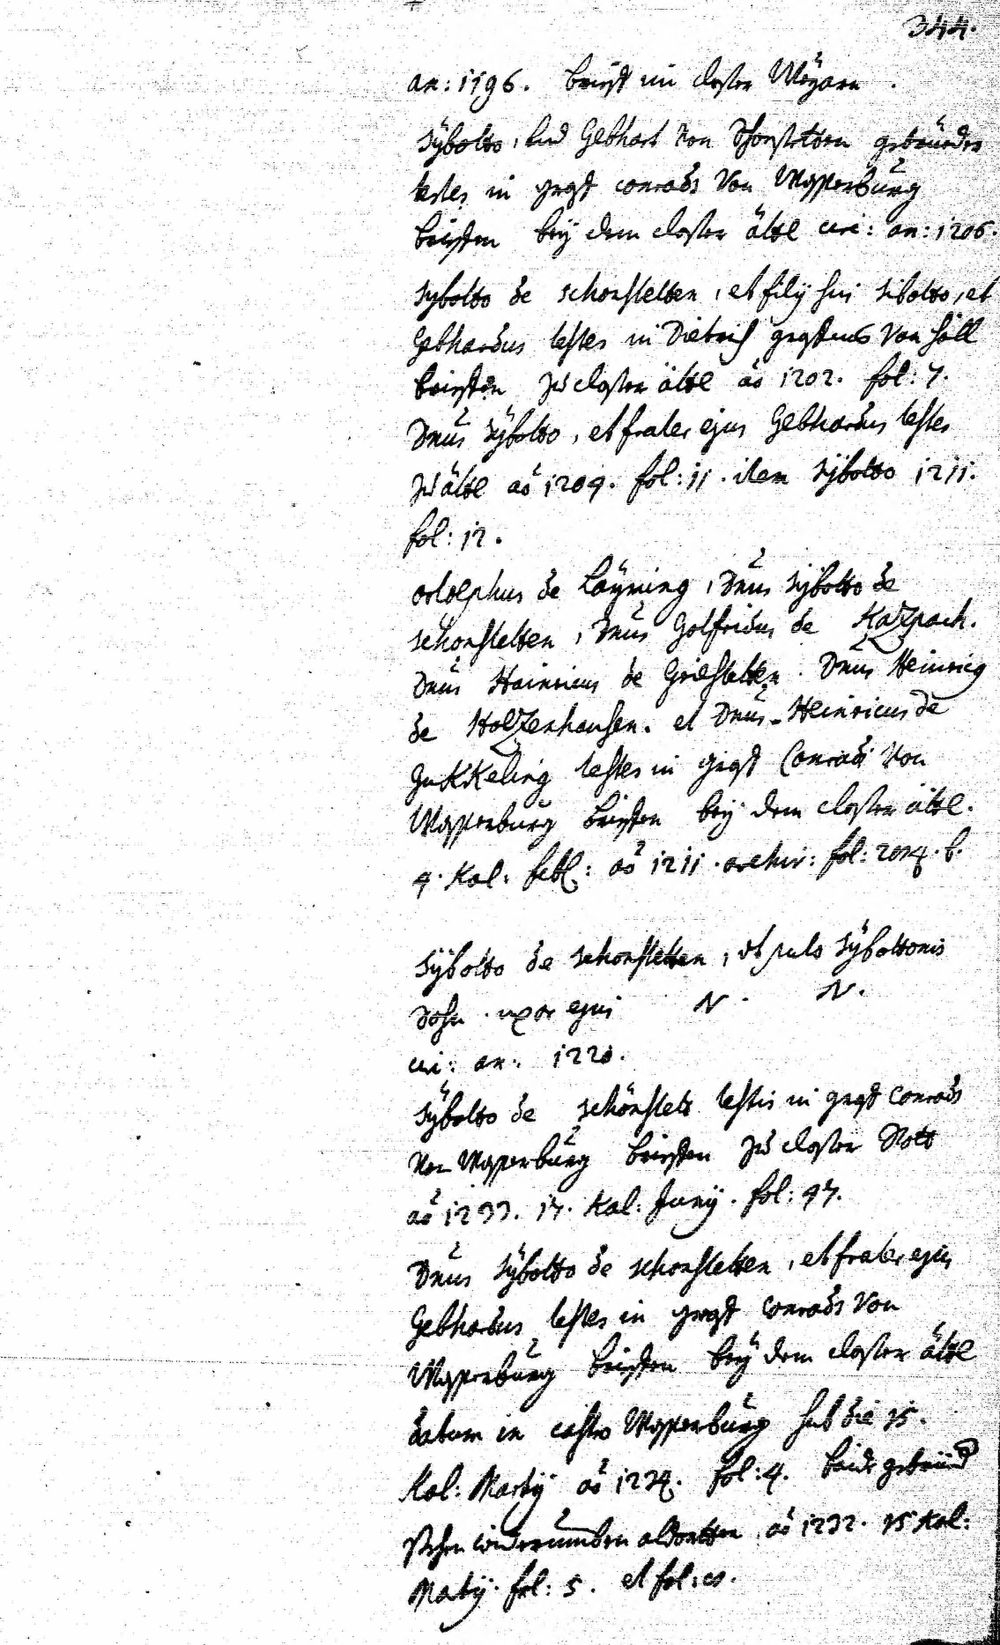 344.
an: 1196. brieff im closter Weyarn.
Sÿbolto, und Gebhart von Schonstetten gebrüeder
testes in graff conrads von Wasserburg
brieffen beÿ dem closter ättl circ: an: 1206.
Sybolto de schonstetten, et filÿ sui sibolto, et
Gebhardus testes in Dietrich von Höll
brieffen zu closter ättl aõ 1202. fol: 7.
Dnus Sÿbolto, et frater ejus Gebhardus testes
zu ättl aõ 1209. fol: 11. item Sÿbolto 1211.
fol: 12.
de Laÿming, Dnus Sÿbolto de
schonstetten, Dnus Gotfridus de Katzpach.
Dnus Hainricus de Griesstetten. Dnus Heinricg
de Holtzenhausen. et Dnus Heinricus de
GuKKeling testes in graff Conrads von
Wasserburg brieffen beÿ dem closter ättl.
4. Kal: febr: aõ 1211. archiv: fol: 204. b.
Sÿbolto de schonstetten, Sÿboltonis
Sohn. uxor ejus N. N.
circ: an: 1220.
Sÿbolto de schönstett testis in graff Conrads
von Wasserburg brieffen zu closter Rott
aõ 1233. 17. Kal: Junÿ. fol: 47.
Dnus Sÿbolto de schonstetten, et frater ejus
Gebhardus testes in graff Conrads von
Wasserburg brieffen beÿ dem closter ättl
datum in castro Wasserburg sub die 15.
Kal: Martÿ aõ 1234. fol: 4. baide gebrüed
stehen widerumben aldorten aõ 1232. 15 Kal:
Martÿ. fol: 5. et fol: